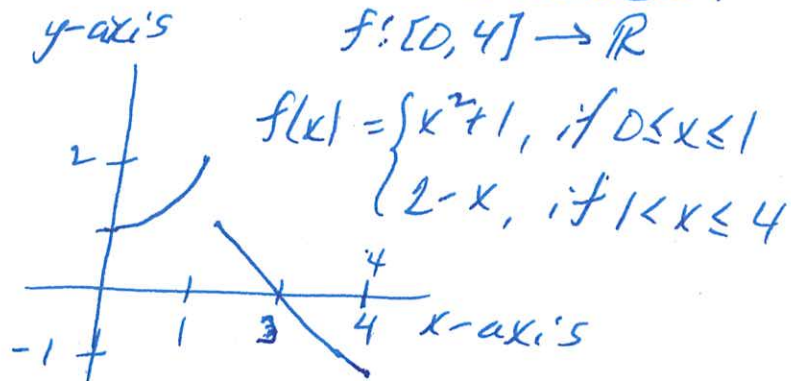 y-axis
f: [0,4] → ℝ
f(x) = { x²+1, if 0≤x≤1
2-x, if 1<x≤4
2
4
1 3 4 x-axis
-1